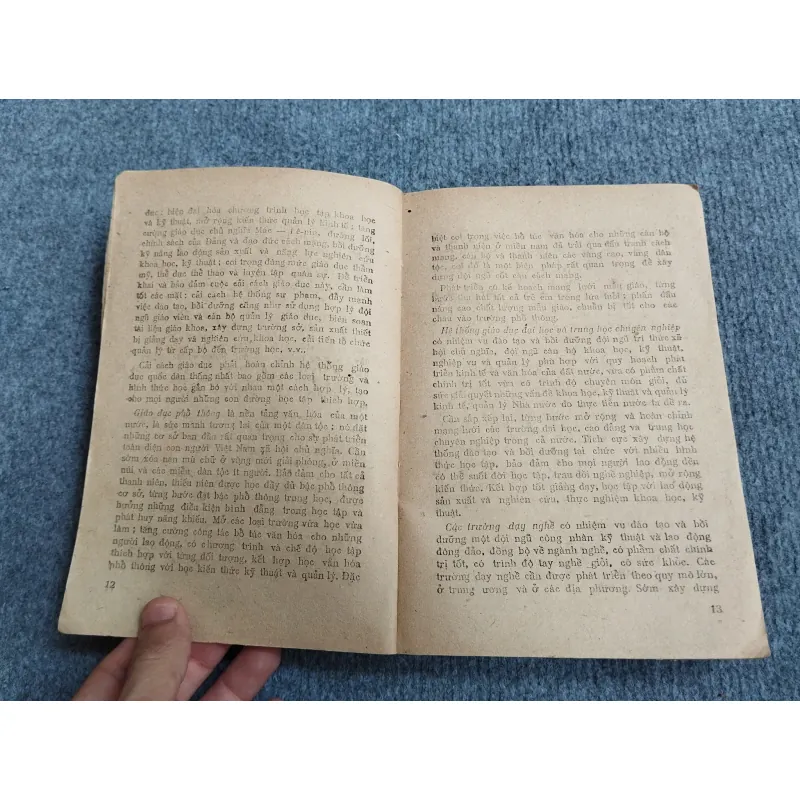 đục; hiện đại hóa chương trình học tập khoa học
và kỹ thuật, mở rộng kiến thức quản lý kinh tế; tăng
cường giáo dục chủ nghĩa Mác — Lê-nin, đường lối,
chính sách của Đảng và đạo đức cách mạng, bồi dưỡng
kỹ năng lao động sản xuất và năng lực nghiên cứu
khoa học, kỹ thuật; coi trọng đúng mức giáo dục thẩm
mỹ, thể dục thể thao và luyện tập quân sự. Để triển
khai và bảo đảm cuộc cải cách giáo dục này, cần làm
tốt các mặt: cải cách hệ thống sư phạm, đẩy mạnh
việc đào tạo, bồi dưỡng cũng như sử dụng hợp lý đội
ngũ giáo viên và cán bộ quản lý giáo dục, biên soạn
tài liệu giáo khoa, xây dựng trường sở, sản xuất thiết
bị giảng dạy và nghiên cứu khoa học, cải tiến tổ chức
quản lý từ cấp bộ đến trường học, v.v..
Cải cách giáo dục phải hoàn chỉnh hệ thống giáo
dục quốc dân thống nhất bao gồm các loại trường và
hình thức học gắn bó với nhau một cách hợp lý, tạo
cho mọi người những con đường học tập thích hợp.
Giáo dục phổ thông là nền tảng văn hóa của một
nước, là sức mạnh tương lai của một dân tộc; nó đặt
những cơ sở ban đầu rất quan trọng cho sự phát triển
toàn diện con người Việt Nam xã hội chủ nghĩa. Cần
sớm xóa nạn mù chữ ở vùng mới giải phóng, ở miền
núi và các miền dân tộc ít người. Bảo đảm cho tất cả
thanh niên, thiếu niên được học đầy đủ bậc phổ thông
cơ sở, từng bước đạt bậc phổ thông trung học, được
hưởng những điều kiện bình đẳng trong học tập và
phát huy năng khiếu. Mở các loại trường vừa học vừa
làm; tăng cường công tác bổ túc văn hóa cho những
người lao động, có chương trình và chế độ học tập
thích hợp với từng đối tượng, kết hợp học văn hóa
phổ thông với học kiến thức kỹ thuật và quản lý. Đặc
12
biệt coi trọng việc bổ túc văn hóa cho những cán bộ
và thanh niên ở miền nam đã trải qua đấu tranh cách
mạng, cán bộ và thanh niên các vùng cao, vùng dân
tộc, coi đó là một biện pháp rất quan trọng để xây
dựng đội ngũ cốt cán cách mạng.
Phát triển có kế hoạch mạng lưới mẫu giáo, từng
bước thu hút tất cả trẻ em trong lứa tuổi; phấn đấu
nâng cao chất lượng mẫu giáo, chuẩn bị tốt cho các
cháu vào trường phổ thông.
Hệ thống giáo dục đại học và trung học chuyên nghiệp
có nhiệm vụ đào tạo và bồi dưỡng đội ngũ trí thức xã
hội chủ nghĩa, đội ngũ cán bộ khoa học, kỹ thuật,
nghiệp vụ và quản lý phù hợp với quy hoạch phát
triển kinh tế và văn hóa của đất nước, vừa có phẩm chất
chính trị tốt vừa có trình độ chuyên môn giỏi, đủ
sức giải quyết những vấn đề khoa học, kỹ thuật và quản lý
kinh tế, quản lý Nhà nước do thực tiễn nước ta đề ra.
Cần sắp xếp lại, từng bước mở rộng và hoàn chỉnh
mạng lưới các trường đại học, cao đẳng và trung học
chuyên nghiệp trong cả nước. Tích cực xây dựng hệ
thống đào tạo và bồi dưỡng tại chức với nhiều hình
thức học tập, bảo đảm cho mọi người lao động đều
có thể suốt đời học tập, trau dồi nghề nghiệp, mở rộng
kiến thức. Kết hợp tốt giảng dạy, học tập với lao động
sản xuất và nghiên cứu, thực nghiệm khoa học, kỹ
thuật.
Các trường dạy nghề có nhiệm vụ đào tạo và bồi
dưỡng một đội ngũ công nhân kỹ thuật và lao động
đông đảo, đồng bộ về ngành nghề, có phẩm chất chính
trị tốt, có trình độ tay nghề giỏi, có sức khỏe. Các
trường dạy nghề cần được phát triển theo quy mô lớn,
ở trung ương và ở các địa phương. Sớm xây dựng
13